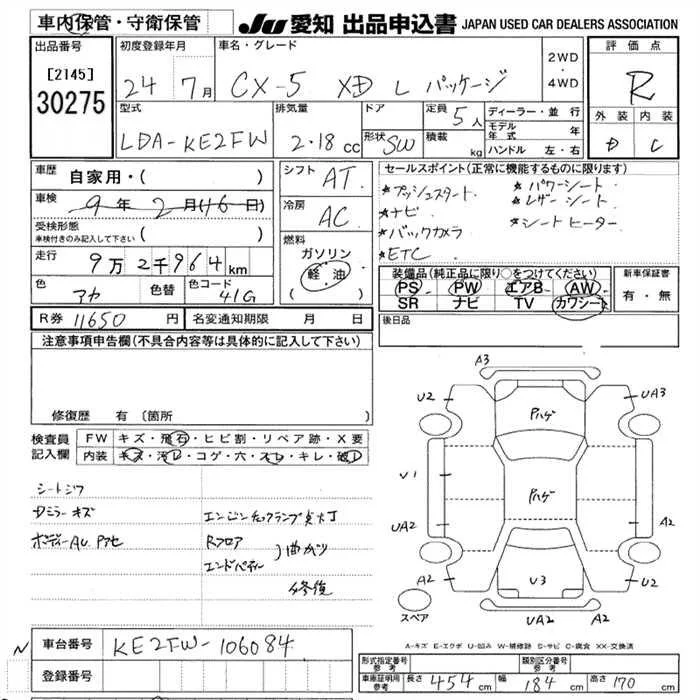 車内保管・守衛保管
JU 愛知 出品申込書 JAPAN USED CAR DEALERS ASSOCIATION
出品番号
[2145]
30275
初度登録年月
24 7月
車名・グレード
CX-5 XD L パッケージ
2WD
・
4WD
評価点
R
外装 内装
D C
型式
LDA-KE2FW
排気量
2.18 cc
ドア
形状 SW
定員 5人
積載 kg
ディーラー・並行
モデル年式 年
ハンドル 左・右
車歴
自家用・( )
車検
9年 2月(16日)
受検形態
車検付きのみ記入して下さい ( )
走行
9万 2千964km
色
アカ
色替
色コード
41G
シフト
AT
冷房
AC
燃料
ガソリン
軽油
( )
セールスポイント(正常に機能するものに限ります)
★プッシュスタート ★パワーシート
★ナビ ★レザーシート
★バックカメラ ★シートヒーター
★ETC
装備品(純正品に限り○をつけてください)
PS PW エアB AW
SR ナビ TV カワシート
新車保証書
有・無
R券 11650 円 名変通知期限 月 日
後日品
注意事項申告欄(不具合内容等は具体的に記入して下さい)
修復歴 有(箇所
検査員
記入欄
FW キズ・飛石・ヒビ割・リペア跡・X要
内装 キズ・汚レ・コゲ・穴・スレ・キレ・破レ
シートシワ
Dミラーキズ
エンジンチェックランプ点灯
Rフロア
エンドパネル
)曲がり
修復
A3
U2
UA3
Pハゲ
V1
Pハゲ
UA2
A2
A2
U3
U2
UA2
A2
スペア
A-キズ E-エクボ U-凹み W-補修跡 S-サビ C-腐食 XX-交換済
N
車台番号
KE2FW-106084
登録番号
形式指定番号
参考
類別区分番号
参考
車庫証明用
参考
長さ 454 cm 幅 184 cm 高さ 170 cm